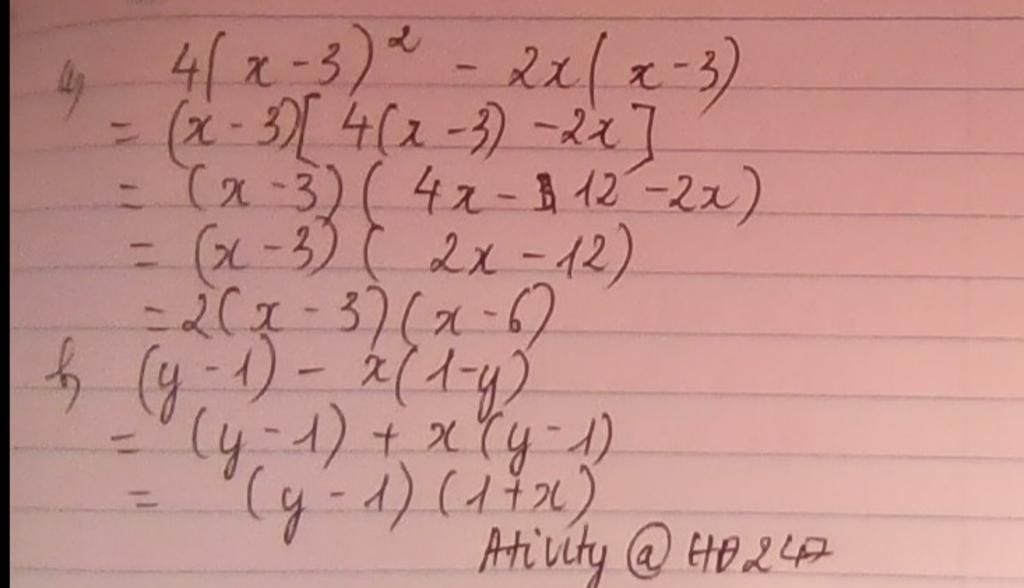 a, 4(x-3)² - 2x(x-3)
= (x-3)[4(x-3) -2x]
= (x-3)(4x- 12 -2x)
= (x-3)(2x-12)
=2(x-3)(x-6)
b, (y-1) - x(1-y)
= (y-1) + x(y-1)
= (y-1)(1+x)
Ativity @